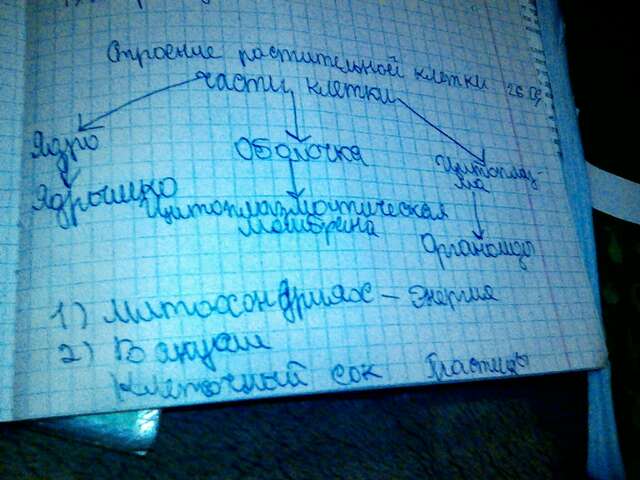 Строение растительной клетки 26.09
части клетки
Ядро
Оболочка
Цитоплаз-
ма
Ядрышко
Цитоплазмотическая
мембрана
Органоиды
1) Митохондриях – энергия
2) Вакуоли
Клеточный сок Пластиды